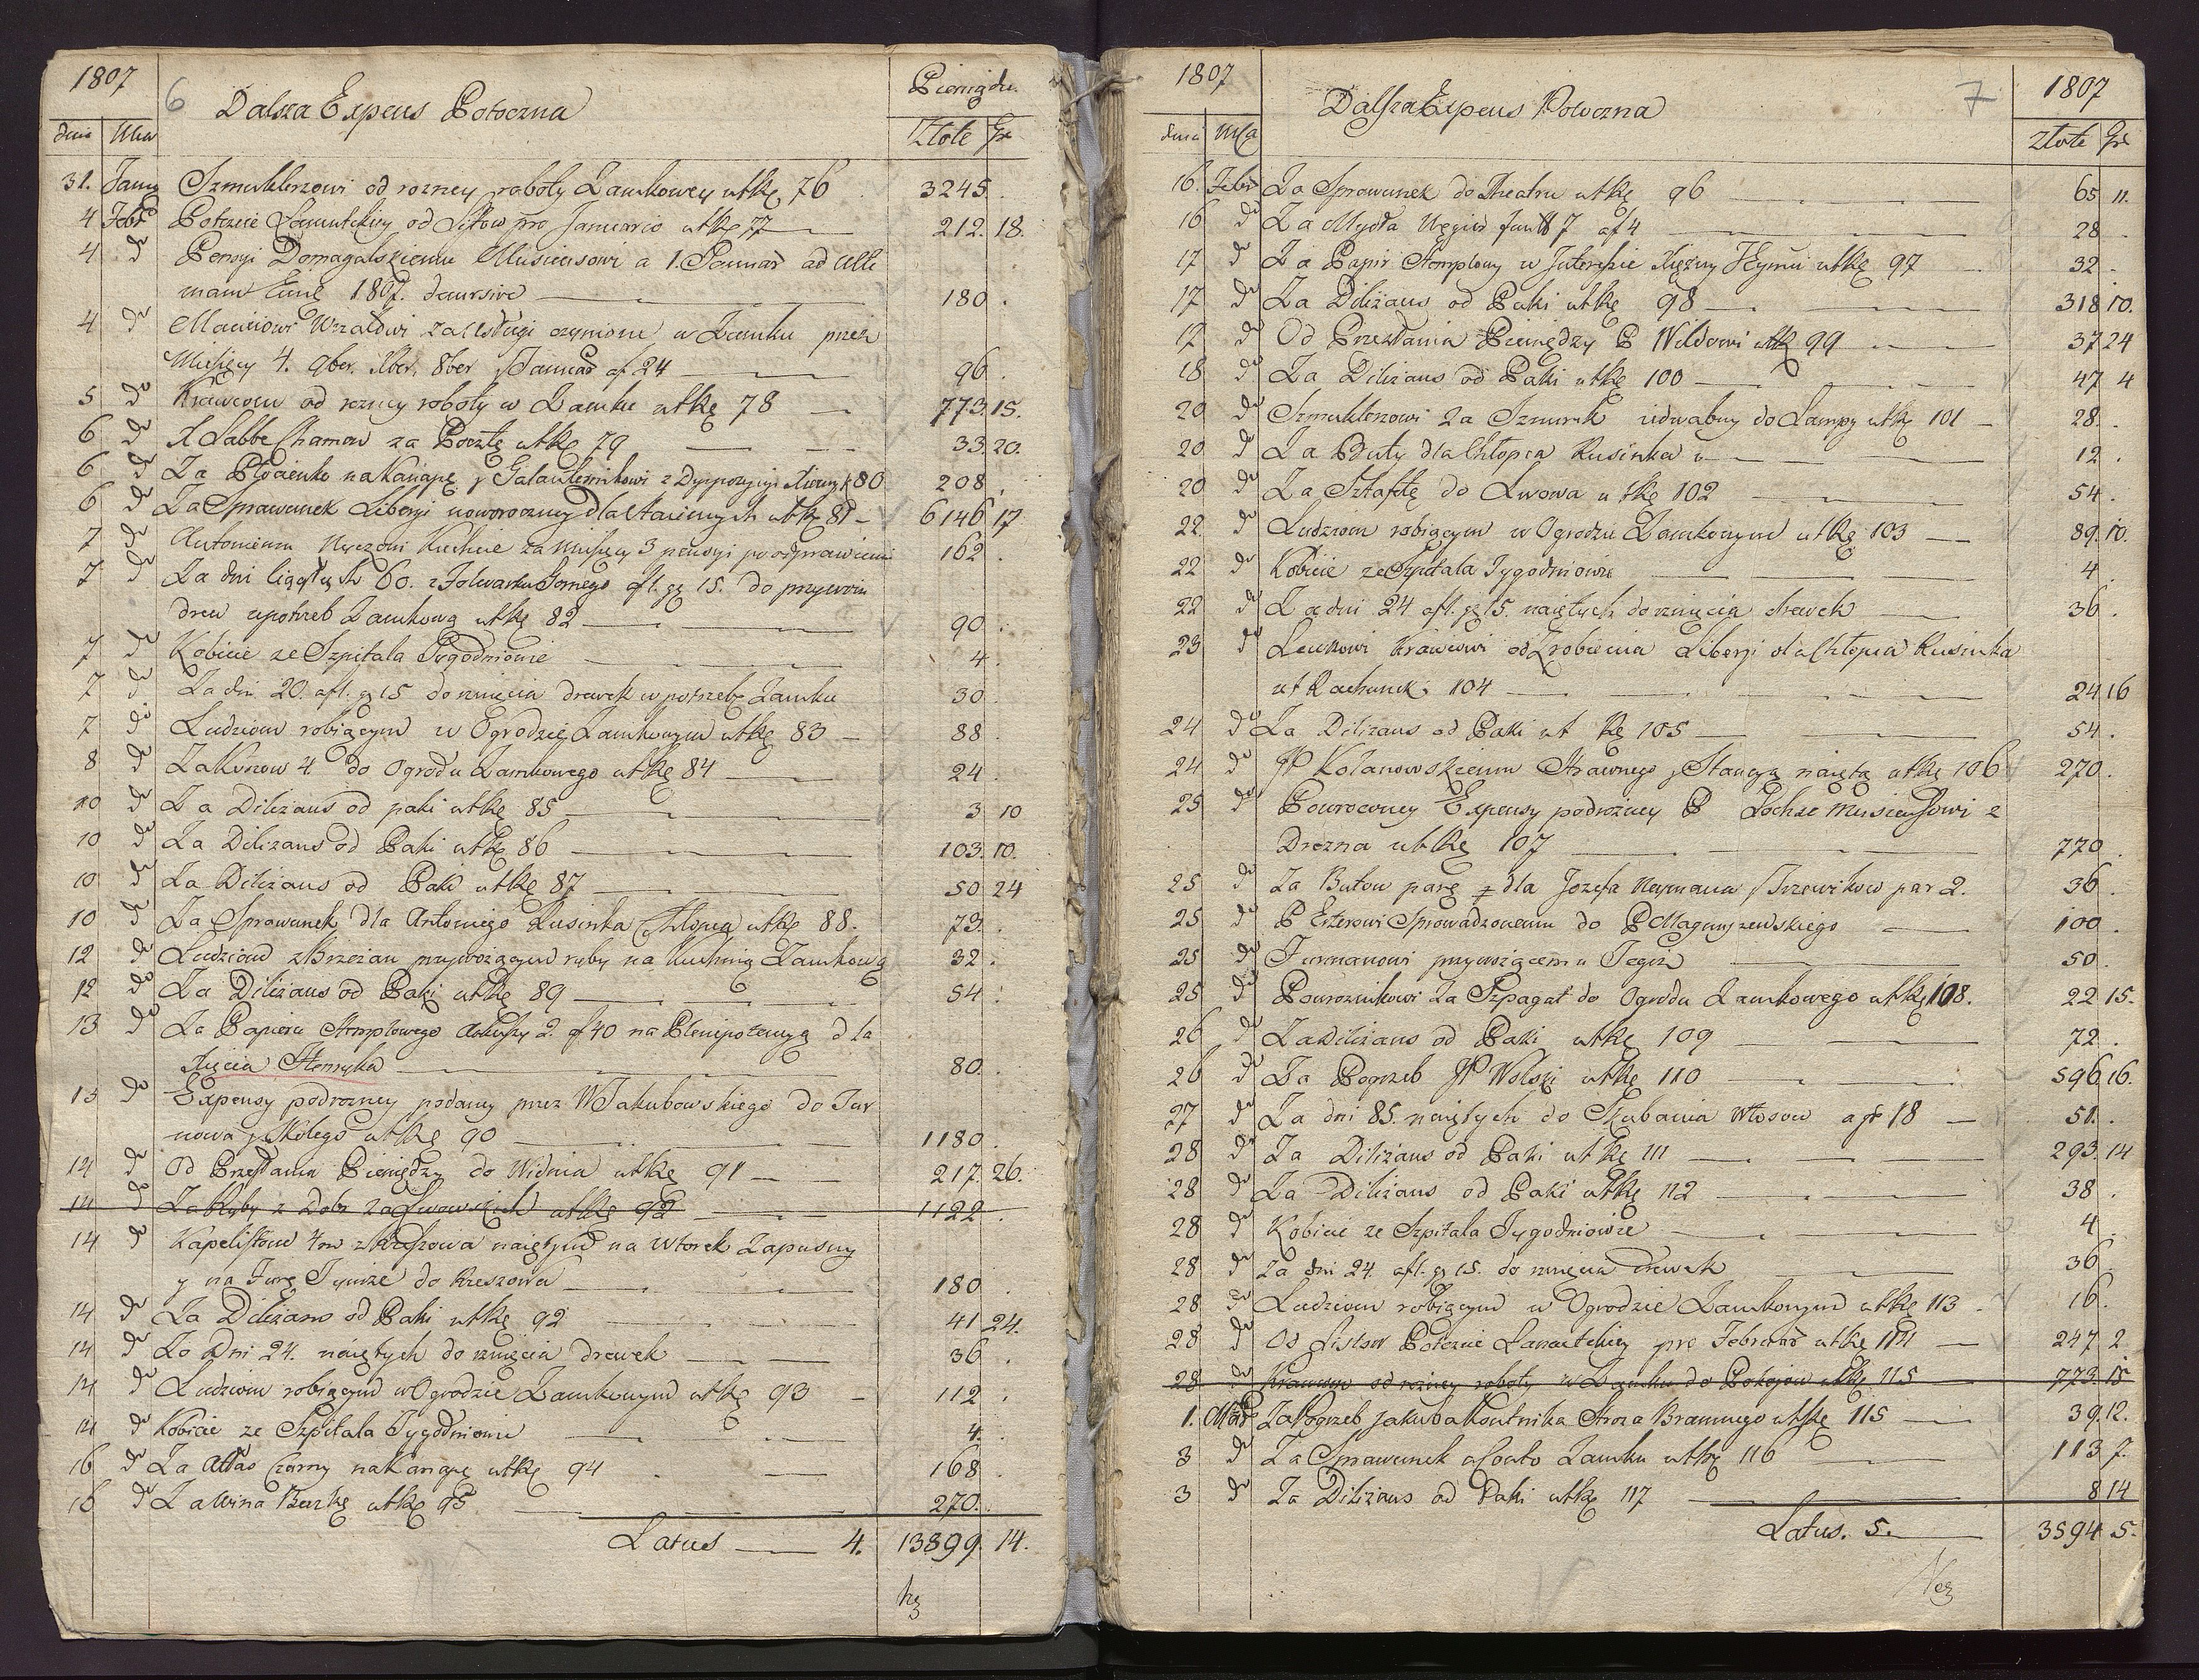 1807
6 Dalsza Expens Potoczna
Pieniądze
dnia Mca Złote Gr
31. Janry Szmuklerzowi od rozney roboty Zamkowey utkę 76 3245.
4 Febr Poczcie Łancutskiey od Listow pro Januario utkę 77 212. 18.
4 do Pensyi Domagalskiemu Musicusowi a 1. Januar ad ulti
mam Junÿ 1807. decursive 180.
4 do Maciiowi za usługi czynione w Zamku przez
Miesięcy 4. 9ber. Xber. 8ber y Januar af 24 96.
5 do Krawcom od rozney roboty w Zamku utkę 78 773. 15.
6 do X Labbe Chamow za Pocztę utkę 79 33. 20.
6 do Za Płocienko na Kanapę y Galanternikowi z Dyspozycyi 80 208.
6 do Za Sprawunek Liberyi noworoczney dla Staiennych utkę 81 6146 17
7 do Antoniemu Kuchcie za Miesięcy 3 pensyi po odprawieniu 162.
7 do Za dni ciągłych 60. z Folwarku Gornego af1. gr 15. do przywozu
drew na potrzeb Zamkową utkę 82 90.
7 do Kobicie ze Szpitala Tygodniowie 4.
7 do Za dni 20. af1. gr 15 do rznięcia drewek w potrzebę Zamku 30.
7 do Ludziom robiącym w Ogrodzie Zamkowym utkę 83 88.
8 do Za Konow 4 do Ogrodu Zamkowego utkę 84 24.
10 do Za Diliżans od paki utkę 85 3 10
10 do Za Diliżans od Paki utkę 86 103. 10.
10 do Za Diliżans od Paki utkę 87 50 24
10 do Za Sprawunek dla Antoniego Rusinka Chłopca utkę 88. 73.
12 do Ludziom z Brzeżan przywożącym ryby na kuchnią Zamkową 32.
12 do Za Diliżans od Paki utkę 89 54.
13 do Za Papieru Stemplowego Arkuszy 2. af 40 na Plenipotencyą dla
Xięcia Henryka 80.
13 do Expensy podrozney podaney przez W Jakubowskiego do Tar
nowa y Skolego utkę 90 1180.
14 do Od Przesłania Pieniędzy do Widnia utkę 91 217. 26.
14 do Za Ryby z Dobr za Lwowskich utkę 92 1122.
14 do Kapelistom 4m z Rzeszowa naiętym na wtorek Zapusny
y na Furę Tymże do Rzeszowa 180.
14 do Za Diliżans od Paki utkę 92 41 24.
14 do Za Dni 24. naiętych do rznięcia drewek 36.
14 do Ludziom robiącym w Ogrodzie Zamkowym utkę 93 112.
14 do Kobicie ze Szpitala Tygodniowie 4.
16 do Za Atłas Czarny na Kanapę utkę 94 168.
16 do Za Wina Beczkę utkę 95 270.
Latus 4. 13899. 14.
1807
Dalsza Expens Potoczna
7
1807
dnia Mca Złote Gr
16. Febr Za Sprawunek do Theatru utkę 96 65 11.
16 do Za Mydła Węgier funt 7 af 4 28
17 do Za Papir Stemplowy w Interesie Xiężny Jeymci utkę 97 32.
17 do Za Diliżans od Paki utkę 98 318 10.
17 do Od Przesłania Pieniędzy P Wildowi utkę 99 37 24
18 do Za Diliżans od Paki utkę 100 47 4
20 do Szmuklerzowi za Sznurek iedwabny do Lampy utkę 101 28.
20 do Za Buty dla Chłopca Rusinka 12.
20 do Za Sztafetę do Lwowa utkę 102 54.
22. do Ludziom robiącym w Ogrodzie Zamkowym utkę 103 89. 10.
22 do Kobicie ze Szpitala Tygodniowie 4
22 do Za dni 24 af1. gr 15. naiętych do rznięcia drewek 36.
23 do Krawcowi od Zrobienia Liberyi dla Chłopca Rusinka
ut Rachunek 104 24 16
24 do Za Diliżans od Paki ut kę 105 54.
24 do JP Kolanowskiemu Strawnego y Stancyą naiętą utkę 106 270.
25 do Powroconey Expensy podrożney P Musicusowi z
Drezna utkę 107 770
25 do Za Butow parę dla Jozefa Neymana y Trzewikow par 2. 36.
25 do P Esterowi Sprowadzonemu do P Magnuszewskiego 100.
25 do Furmanowi przywożącemu Tegoż 50.
25 do Powroznikowi Za Szpagat do Ogrodu Zamkowego utkę 108. 22 15.
26 do Za Diliżans od Paki utkę 109 72.
26 do Za Pogrzeb JP Wolski utkę 110 596 16.
27 do Za dni 85. naiętych do Skubania Włosow a gr 18 51.
28 do Za Diliżans od Paki utkę 111 293. 14
28 do Za Diliżans od Paki utkę 112 38.
28 do Kobicie ze Szpitala Tygodniowie 4
28 do Za dni 24. af1. gr 15. do rznięcia drewek 36
28 do Ludziom robiącym w Ogrodzie Zamkowym utkę 113 16.
28 do Od Listow Poczcie Łancutskiey pro Februar utkę 114 247 2
28 do Krawcom od rozney roboty w Zamku do Pokojow utkę 115 773. 15
1. Mar Za Pogrzeb Jakuba Stroza Bramnego utkę 115 39. 12.
3 do Za Sprawunek a Conto Zamku utkę 116 113 7.
3 do Za Diliżans od Paki utkę 117 8 14
Latus. 5. 3594 5.